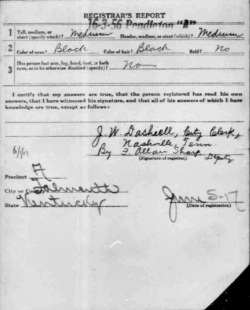 REGISTRAR'S REPORT
16-3-56 Pendleton "A"
1 Tall, medium, or short (specify which)? Medium Slender, medium, or stout (which)? Medium
2 Color of eyes? Black Color of hair? Black Bald? No
3 Has person lost arm, leg, hand, foot, or both eyes, or is he otherwise disabled (specify)? No
I certify that my answers are true, that the person registered has read his own answers, that I have witnessed his signature, and that all of his answers of which I have knowledge are true, except as follows:
J. W. Dashiell, City Clerk,
Nashville, Tenn.
By
(Signature of registrar)
Precinct 7
City or Falmouth
State Kentucky
June 5-17
(Date of registration)